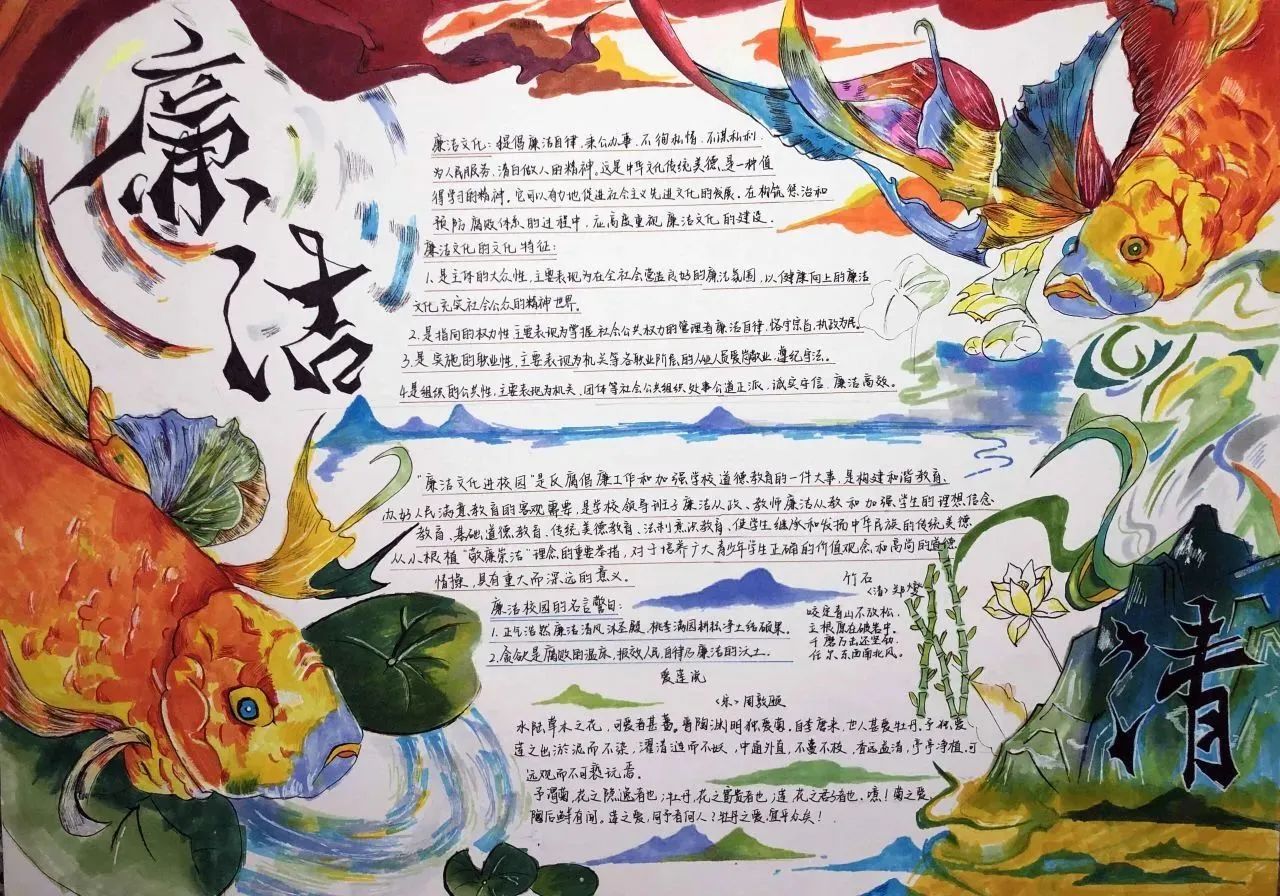 廉
洁
廉洁文化:提倡廉洁自律,秉公办事,不徇私情,不谋私利,
为人民服务,清白做人的精神。这是中华文化传统美德,是一种值
得学习的精神。它可以有力地促进社会主义先进文化的发展。在构筑惩治和
预防腐败体系的过程中,应高度重视廉洁文化的建设.
廉洁文化的文化特征:
1.是主体的大众性,主要表现为在全社会营造良好的廉洁氛围,以健康向上的廉洁
文化充实社会公众的精神世界。
2.是指向的权力性,主要表现为掌握社会公共权力的管理者廉洁自律,恪守宗旨,执政为民。
3.是实施的职业性,主要表现为机关等各职业阶层的从业人员爱岗敬业,遵纪守法。
4.是组织的公共性,主要表现为机关、团体等社会公共组织处事公道正派,诚实守信,廉洁高效。
“廉洁文化进校园”是反腐倡廉工作和加强学校道德教育的一件大事,是构建和谐教育、
办好人民满意教育的客观需要,是学校领导班子廉洁从政、教师廉洁从教和加强学生的理想信念
教育、基础道德教育、传统美德教育、法制意识教育,使学生继承和发扬中华民族的传统美德
从小根植“敬廉崇洁”理念的重要举措,对于培养广大青少年学生正确的价值观念和高尚的道德
情操,具有重大而深远的意义。
廉洁校园的名言警句:
1.正气浩然廉洁清风沐圣殿,桃李满园耕耘净土结硕果。
2.贪欲是腐败的温床,报效人民,自律乃廉洁的沃土.
竹石
(清)郑燮
咬定青山不放松,
立根原在破岩中。
千磨万击还坚劲
任尔东西南北风。
爱莲说
(宋)周敦颐
水陆草木之花,可爱者甚蕃。晋陶渊明独爱菊,自李唐来,世人甚爱牡丹,予独爱
莲之出淤泥而不染,濯清涟而不妖,中通外直,不蔓不枝,香远益清,亭亭净植,可
远观而不可亵玩焉。
予谓菊,花之隐逸者也;牡丹,花之富贵者也;莲,花之君子者也。噫!菊之爱,
陶后鲜有闻。莲之爱,同予者何人?牡丹之爱,宜乎众矣!
清